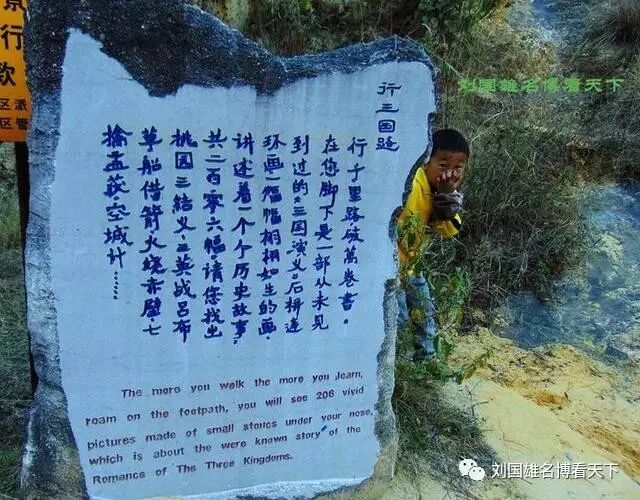 景
行
款
区派
区管
刘国雄名博看天下
行三国路
行千里路破萬卷書。
在您脚下是一部从未見
到过的“三国演义”石拼连
环画一幅幅栩栩如生的画,
讲述着一个个历史故事,
共二百零六幅,请您找出
桃园三结义、三英战吕布
草船借箭、火烧赤壁、七
擒孟获、空城计……
The more you walk the more you learn,
roam on the footpath, you will see 206 vivid
pictures made of small stones under your nose,
which is about the were known story of the
Romance of The Three Kingdoms.
刘国雄名博看天下